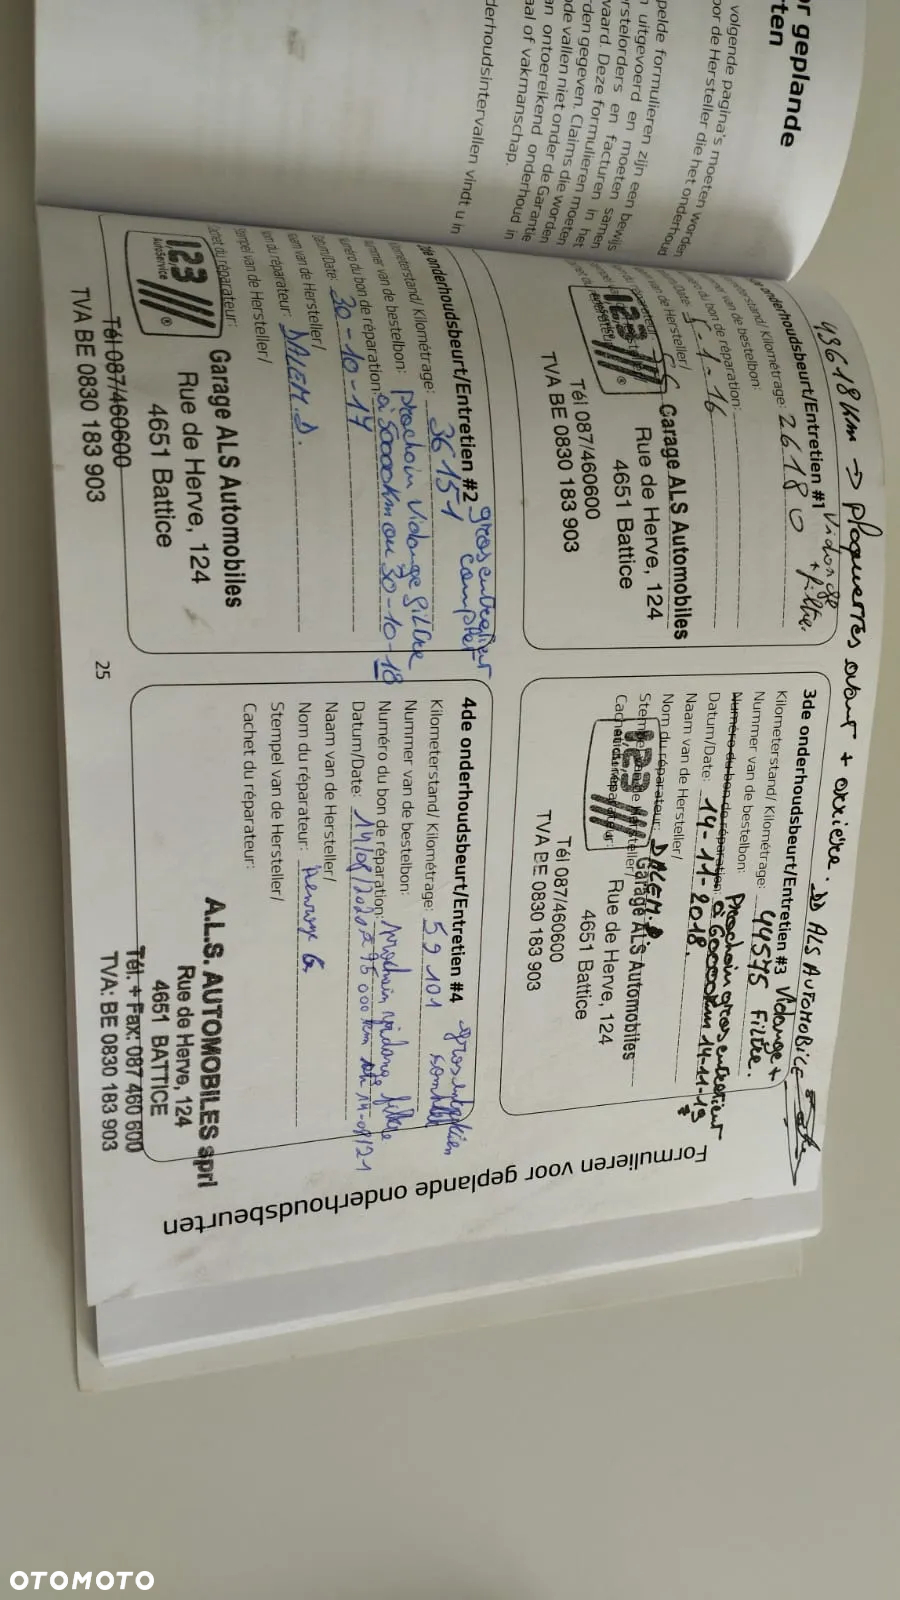 r geplande
ten
volgende pagina's moeten worden
oor de Hersteller die het onderhoud
pelde formulieren zijn een bewijs
uitgevoerd en moeten samen
rstelorders en facturen
vaard. Deze formulieren in het
rden gegeven. Claims die moeten
de vallen niet onder de Garantie
an ontoereikend onderhoud in
aal of vakmanschap.
derhoudsintervallen vindt u in
43618 km → plaquettes avant + arrière. ALS AUTOMOBILE
onderhoudsbeurt/Entretien #1 Vidange
+ filtre.
meterstand/ Kilométrage: 26180
mer van de bestelbon:
ro du bon de réparation:
/Date: 5-1-16
van de Hersteller/
du réparateur
123
Garage ALS Automobiles
Rue de Herve, 124
4651 Battice
Tél 087/460600
TVA BE 0830 183 903
de onderhoudsbeurt/Entretien #2 gros entretien
complet
ometerstand/ Kilométrage: 36151
ummer van de bestelbon: prochain vidange filtre
uméro du bon de réparation: à 50000km ou 30-10-18
tum/Date: 30-10-17
aam van de Hersteller/
om du réparateur: DALEM.D.
empel van de Hersteller/
achet du réparateur:
123
AutoService
®
Garage ALS Automobiles
Rue de Herve, 124
4651 Battice
Tél 087/460600
TVA BE 0830 183 903
25
3de onderhoudsbeurt/Entretien #3 Vidange +
Kilometerstand/ Kilométrage: 44575 Filtre.
Nummer van de bestelbon: Prochain gros entretien
Numéro du bon de réparation: à 60000km 14-11-19
Datum/Date: 14-11-2018.
Naam van de Hersteller/
Nom du réparateur: DALEM.D.
Stempel van de Hersteller/
Cachet du réparateur:
123
Garage ALS Automobiles
Rue de Herve, 124
4651 Battice
Tél 087/460600
TVA BE 0830 183 903
4de onderhoudsbeurt/Entretien #4 gros entretien
Kilometerstand/ Kilométrage: 59101
Nummer van de bestelbon:
Numéro du bon de réparation: prochain vidange filtre
Datum/Date: 14/08/2020
Naam van de Hersteller/
Nom du réparateur:
Stempel van de Hersteller/
Cachet du réparateur:
A.L.S. AUTOMOBILES sprl
Rue de Herve, 124
4651 BATTICE
Tél. + Fax: 087 460 600
TVA: BE 0830 183 903
Formulieren voor geplande onderhoudsbeurten
OTOMOTO